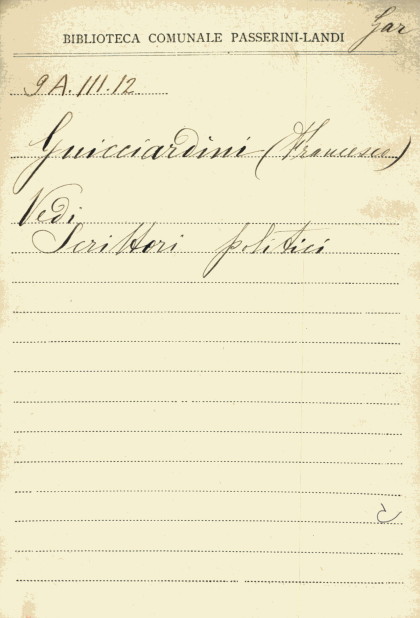 Gar
BIBLIOTECA COMUNALE PASSERINI-LANDI
9A.III.12
Guicciardini (Francesco)
Vedi
Scrittori politici